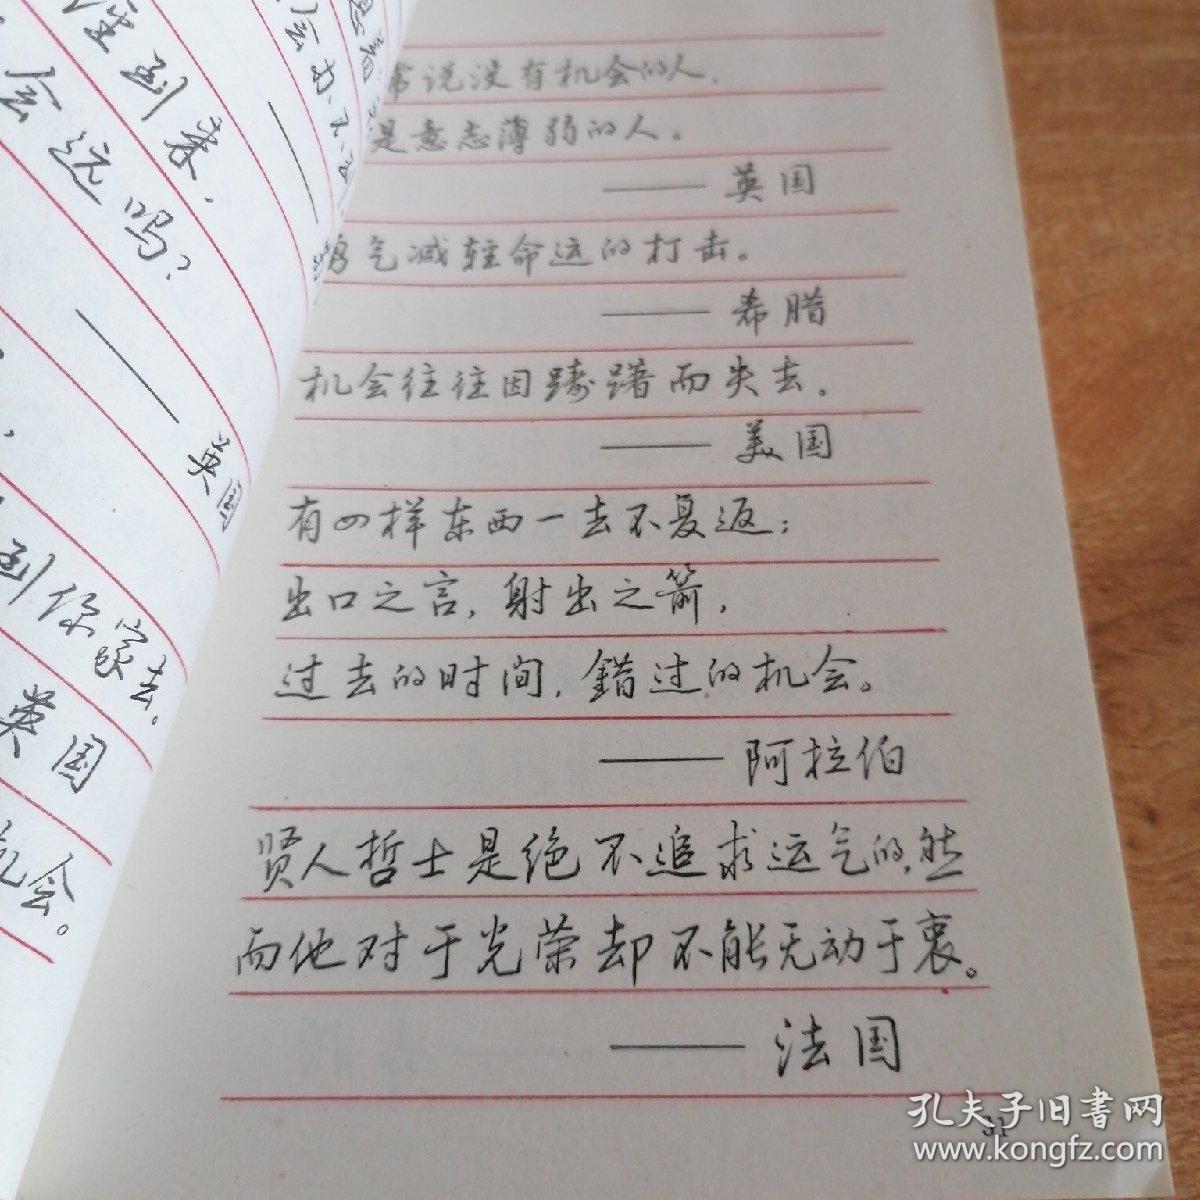 尘到来,
会远吗?
——英国
到你家去。
英国
机会。
会办,不
常说没有机会的人,
是意志薄弱的人。
——英国
勇气减轻命运的打击。
——希腊
机会往往因踌躇而失去。
——美国
有四样东西一去不复返:
出口之言,射出之箭,
过去的时间,錯过的机会。
——阿拉伯
贤人哲士是绝不追求运气的,然
而他对于光荣却不能无动于衷。
——法国
31
孔夫子旧書网
www.kongfz.com